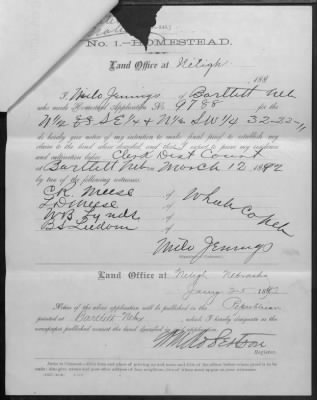 No. 1.—HOMESTEAD.
Land Office at Neligh
188
I, Milo Jennings, of Bartlett Neb
who made Homestead Application No. 9788 for the
W½ SE¼ & N½ SW¼ 32-22-11
do hereby give notice of my intention to make final proof to establish my
claim to the land above described, and that I expect to prove my residence
and cultivation before Clerk Dist Court
at Bartlett Neb on March 12 1892
by two of the following witnesses:
C.K. Meese of
L.D. Meese of Wheeler Co Neb
W.B. Lynde of
B.S. of
Milo Jennings
Land Office at Neligh Nebraska
Jany 25 189
Notice of the above application will be published in the Republican
printed at Bartlett Neb, which I hereby designate as the
newspaper published nearest the land described in said application.
Register.